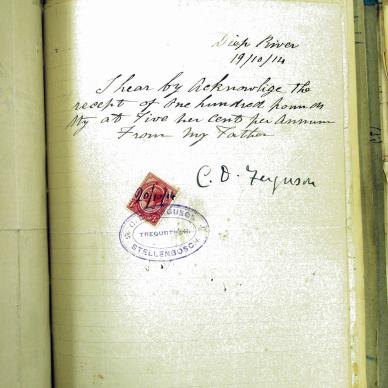 Diep River
19/10/14
I hear by Acknowlige the
recept of One hundred pounds
at Five per cent per Annum
From My Father
C. D. Ferguson
20/10/14
FERGUSON
STELLENBOSCH